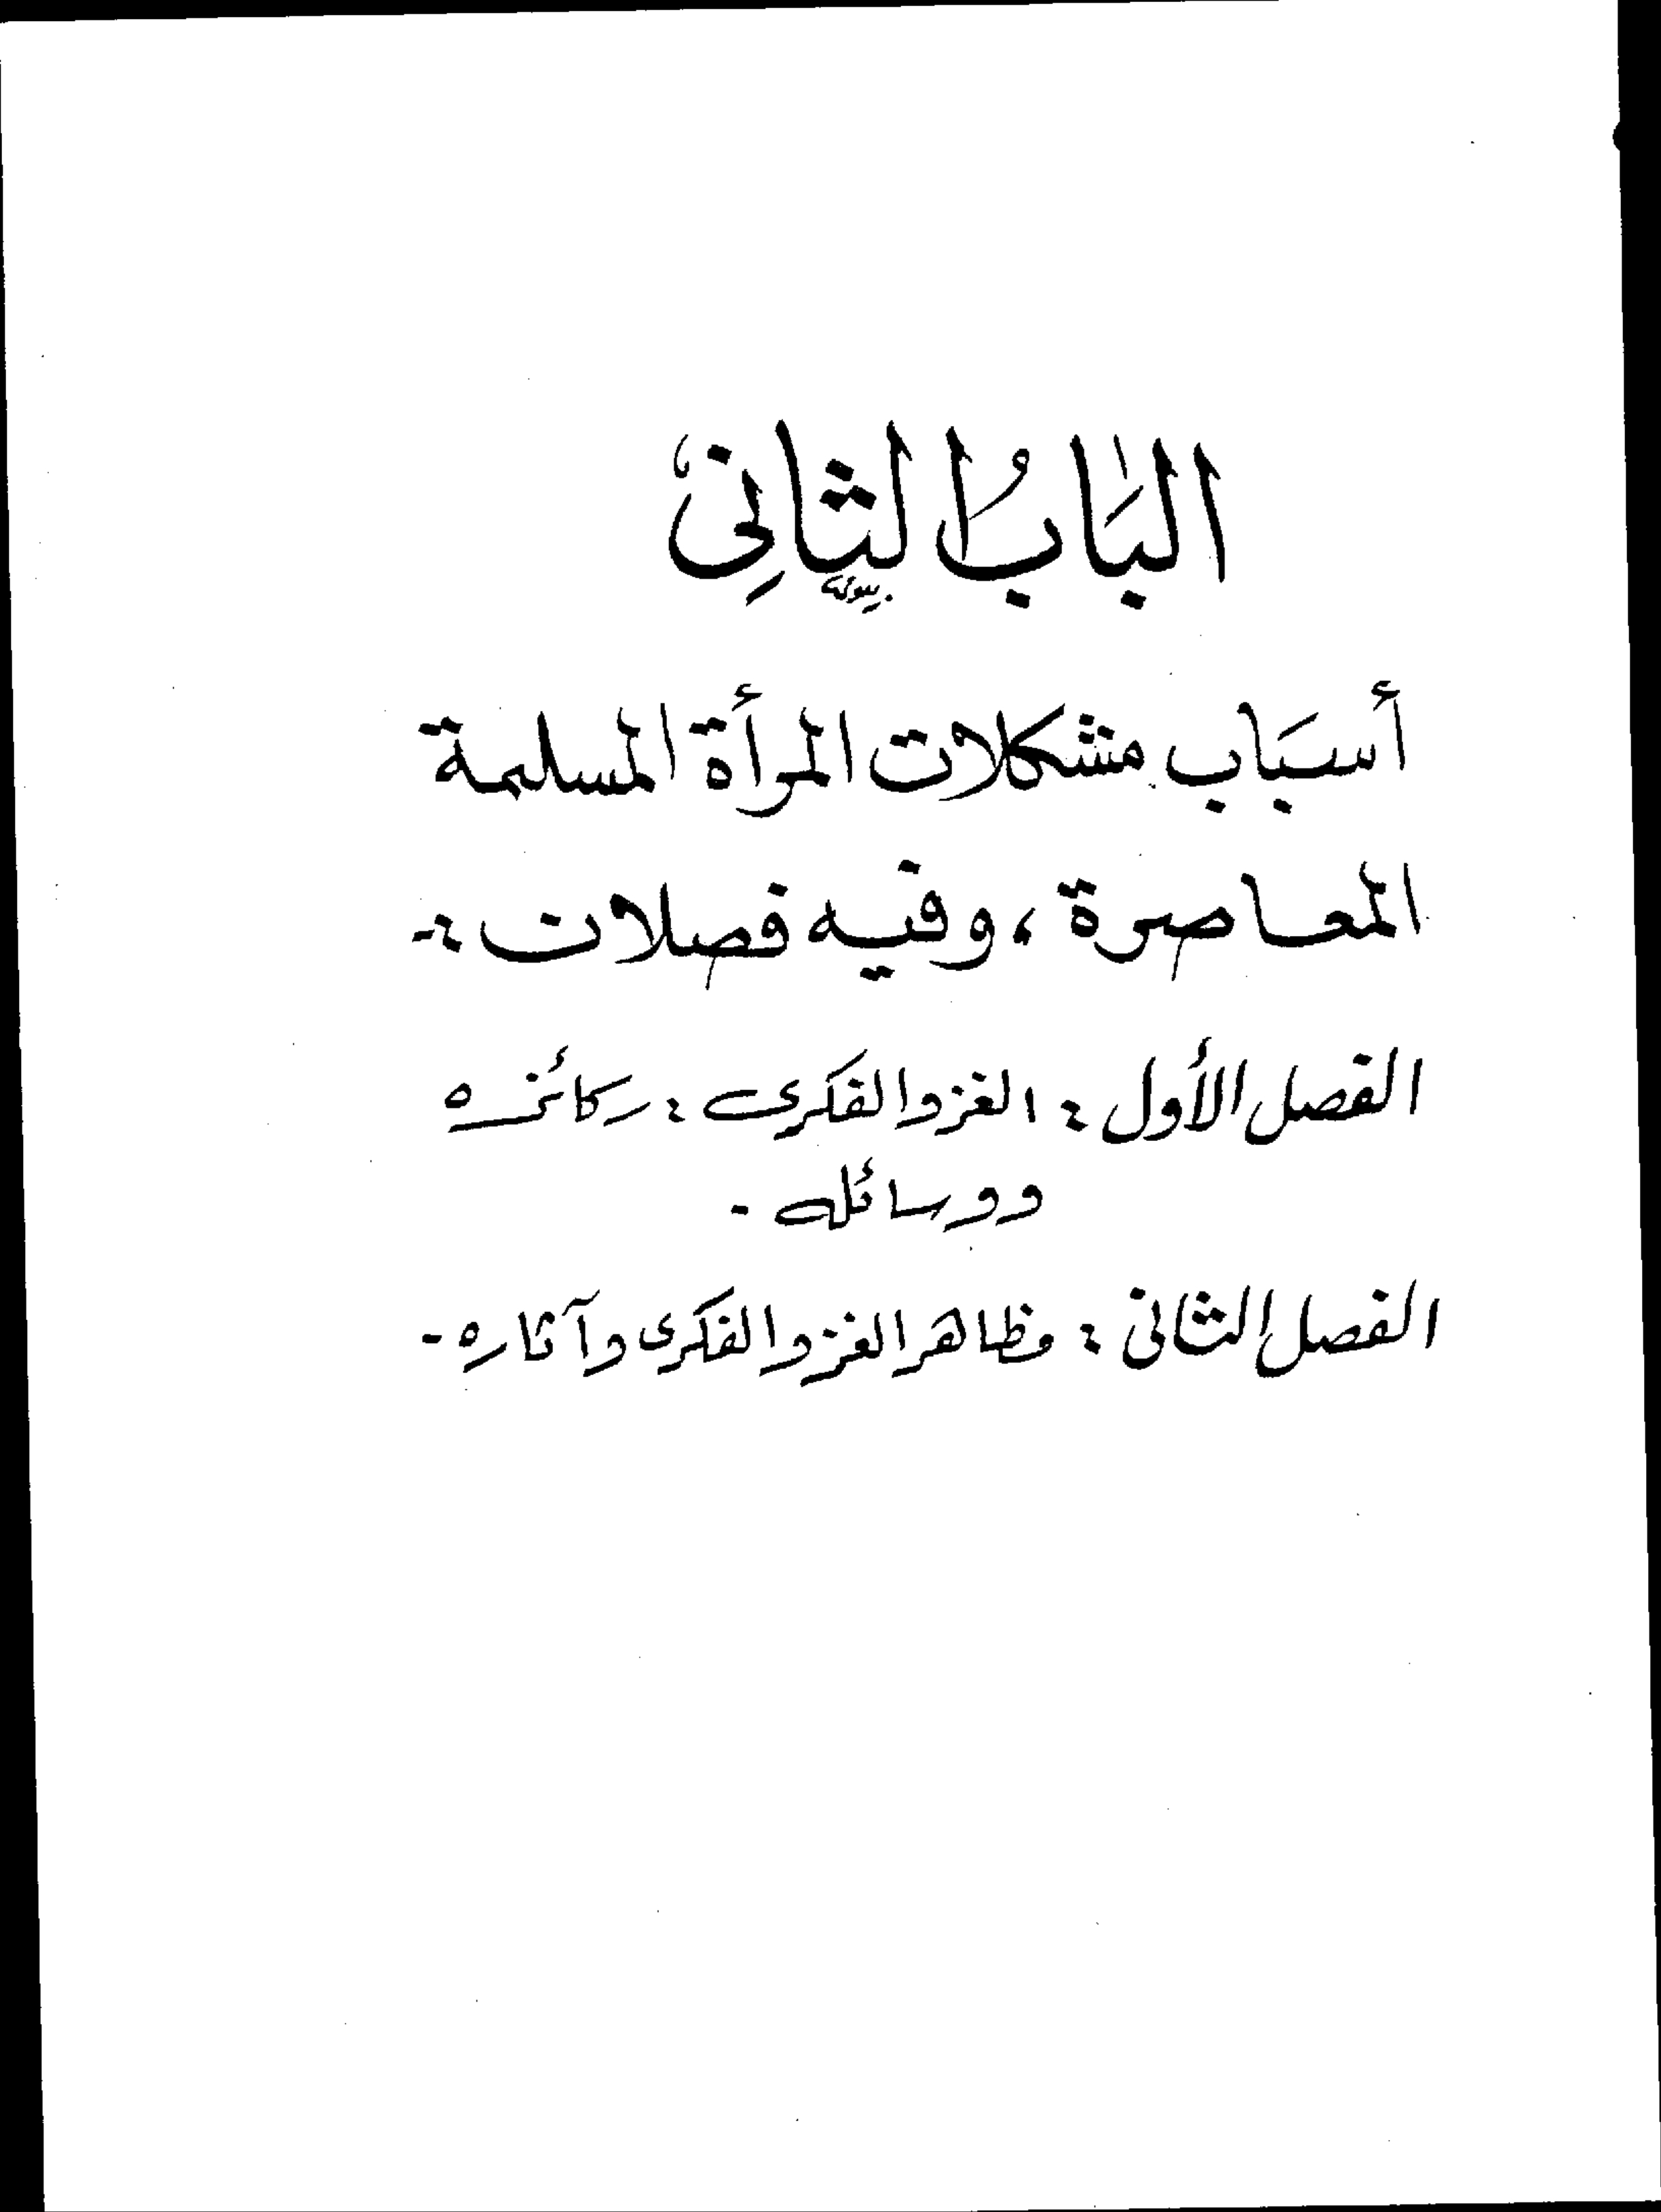 البَابُ الثَّانِي
أسبَاب مشكلات المرأة المسلمة
المعاصرة ، وفيه فصلان :-
الفصل الأول : الغزو الفكري : ركائزه
ووسائله .
الفصل الثاني : مظاهر الغزو الفكرى وآثاره .